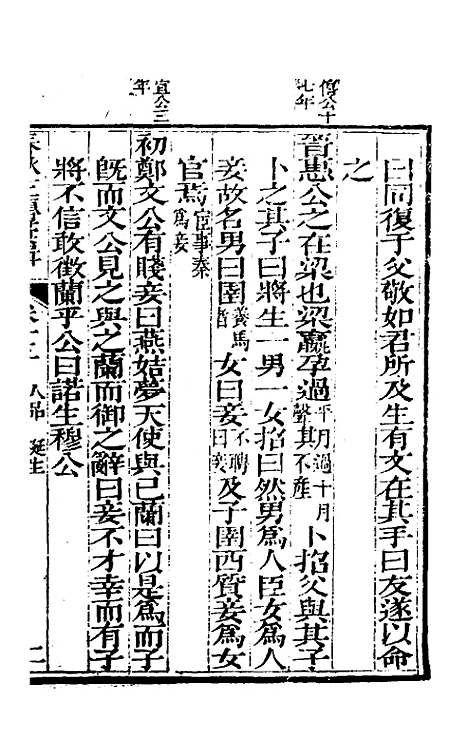 曰同復于父敬如君所及生有文在其手曰友遂以命
之
僖公十七年
晉惠公之在梁也梁嬴孕過平聲其月過十月不產卜招父與其子
卜之其子曰將生一男一女招曰然男爲人臣女爲人
妾故名男曰圉養馬者女曰妾不聘曰妾及子圉西質妾爲女
官焉宦事秦爲妾
宣公三年
初鄭文公有賤妾曰燕姞夢天使與己蘭曰以是爲而子
旣而文公見之與之蘭而御之辭曰妾不才幸而有子
將不信敢徵蘭乎公曰諾生穆公
人部 誕生
二